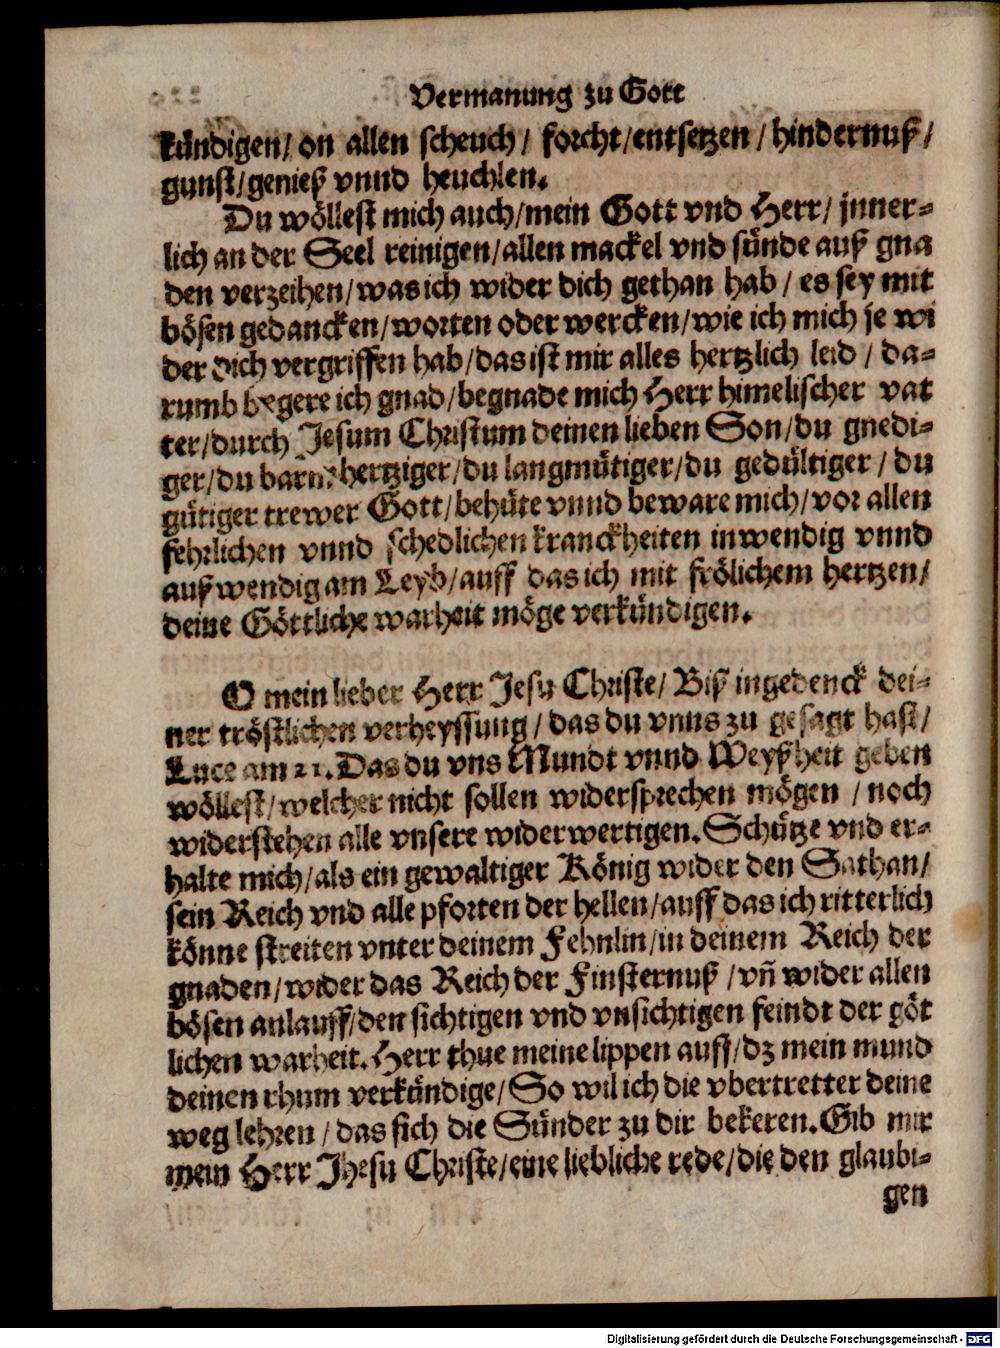 Vermanung zu Gott
kündigen/ on allen scheuch/ forcht/entsetzen/hindernuß/
gunst/genieß vnnd heuchlen.
Du wöllest mich auch/mein Gott vnd Herr/ jnner-
lich an der Seel reinigen/allen mackel vnd sünde auß gna
den verzeihen/was ich wider dich gethan hab/ es sey mit
bösen gedancken/worten oder wercken/wie ich mich je wi
der dich vergriffen hab/das ist mir alles hertzlich leid/ da-
rumb begere ich gnad/begnade mich Herr himelischer vat
ter/durch Jesum Christum deinen lieben Son/du gnedi-
ger/du barmhertziger/du langmütiger/du gedültiger/ du
gütiger trewer Gott/behüte vnnd beware mich/vor allen
fehrlichen vnnd schedlichen kranckheiten inwendig vnnd
außwendig am Leyb/auff das ich mit frölichem hertzen/
deine Göttliche warheit möge verkündigen.
O mein lieber Herr Jesu Christe/ Biß ingedenck dei-
ner tröstlichen verheyssung/das du vnns zu gesagt hast/
Luce am 21. Das du vns Mundt vnnd Weyßheit geben
wöllest/welcher nicht sollen widersprechen mögen/noch
widerstehen alle vnsere widerwertigen. Schütze vnd er-
halte mich/als ein gewaltiger König wider den Sathan/
sein Reich vnd alle pforten der hellen/auff das ich ritterlich
könne streiten vnter deinem Fehnlin/in deinem Reich der
gnaden/wider das Reich der Finsternuß/vñ wider allen
bösen anlauff/den sichtigen vnd vnsichtigen feindt der göt
lichen warheit. Herr thue meine lippen auff/dz mein mund
deinen rhum verkündige/So wil ich die vbertretter deine
weg lehren/das sich die Sünder zu dir bekeren. Gib mir
mein Herr Jhesu Christe/eine liebliche rede/die den glaubi-
gen
Digitalisierung gefördert durch die Deutsche Forschungsgemeinschaft - DFG